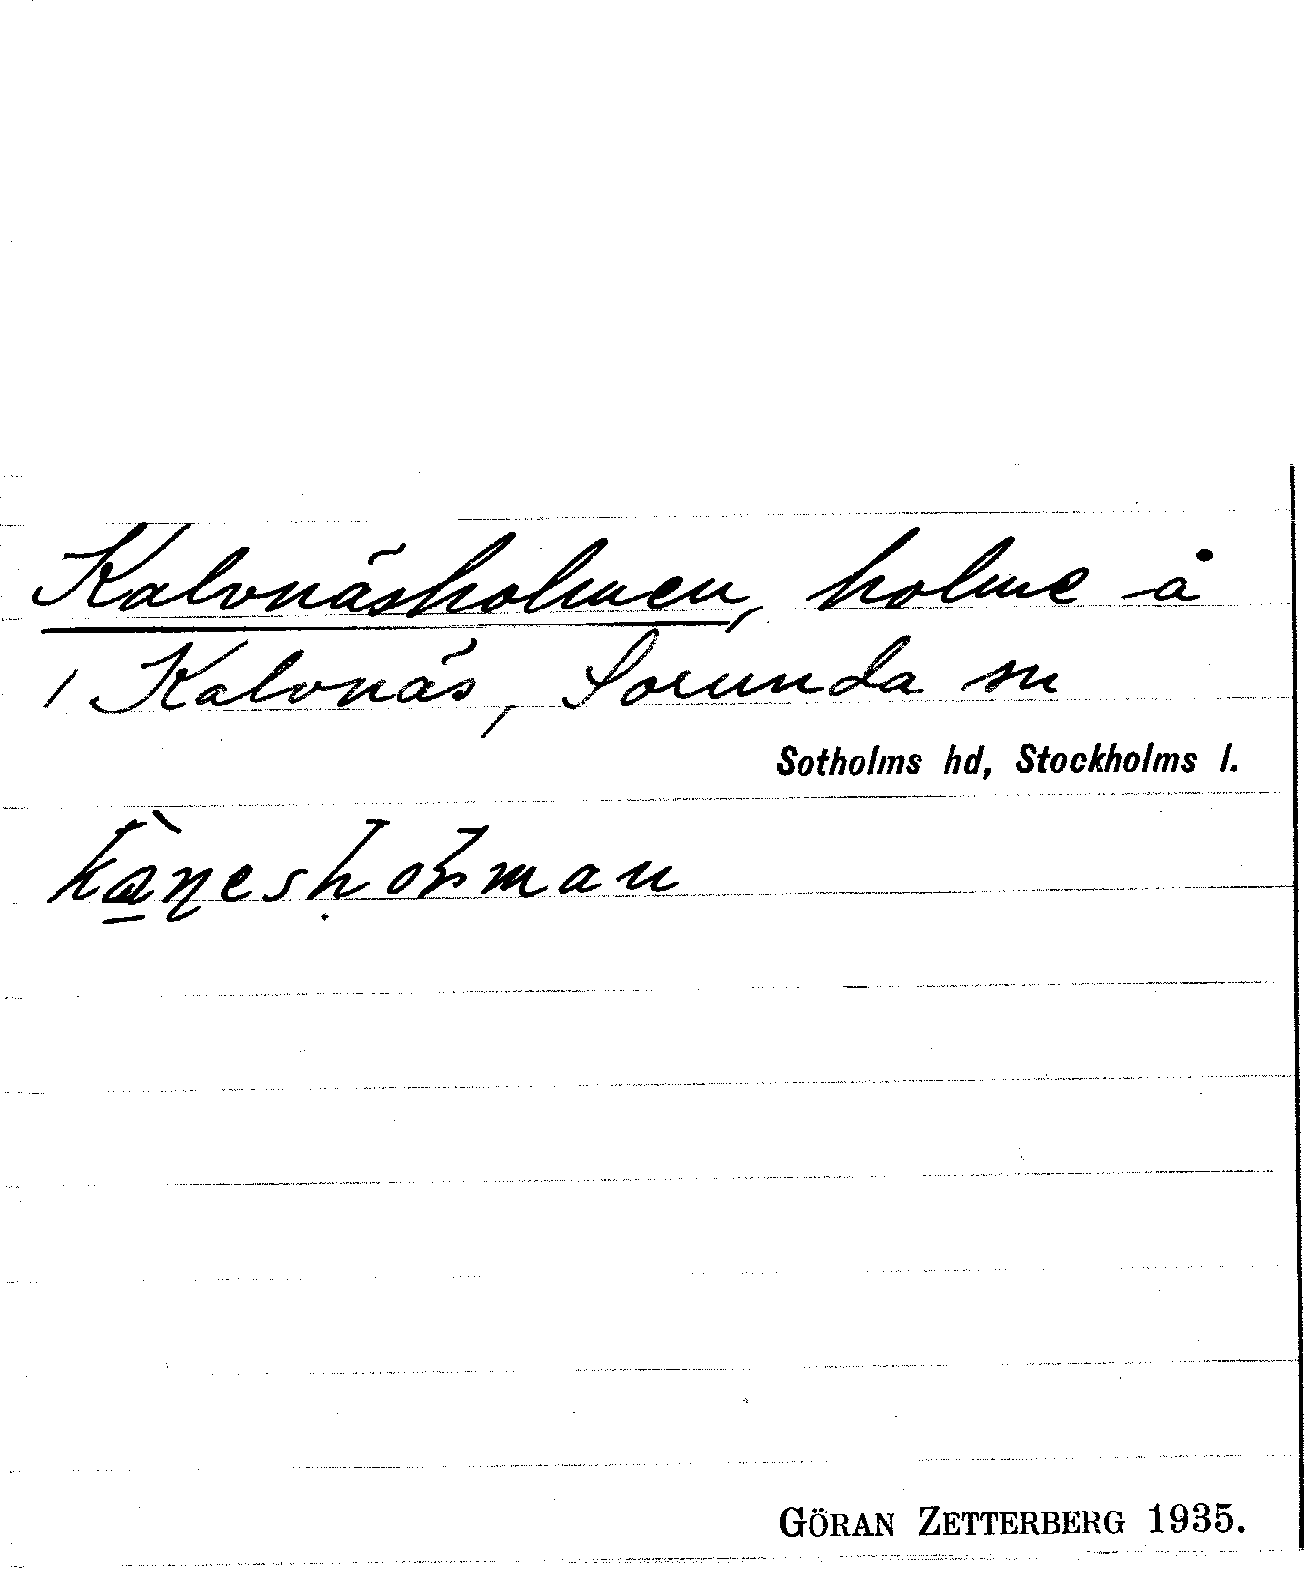 Kalvnäsholmen, holme å
/ Kalvnäs, Sorunda sn
Sotholms hd, Stockholms l.
GÖRAN ZETTERBERG 1935.